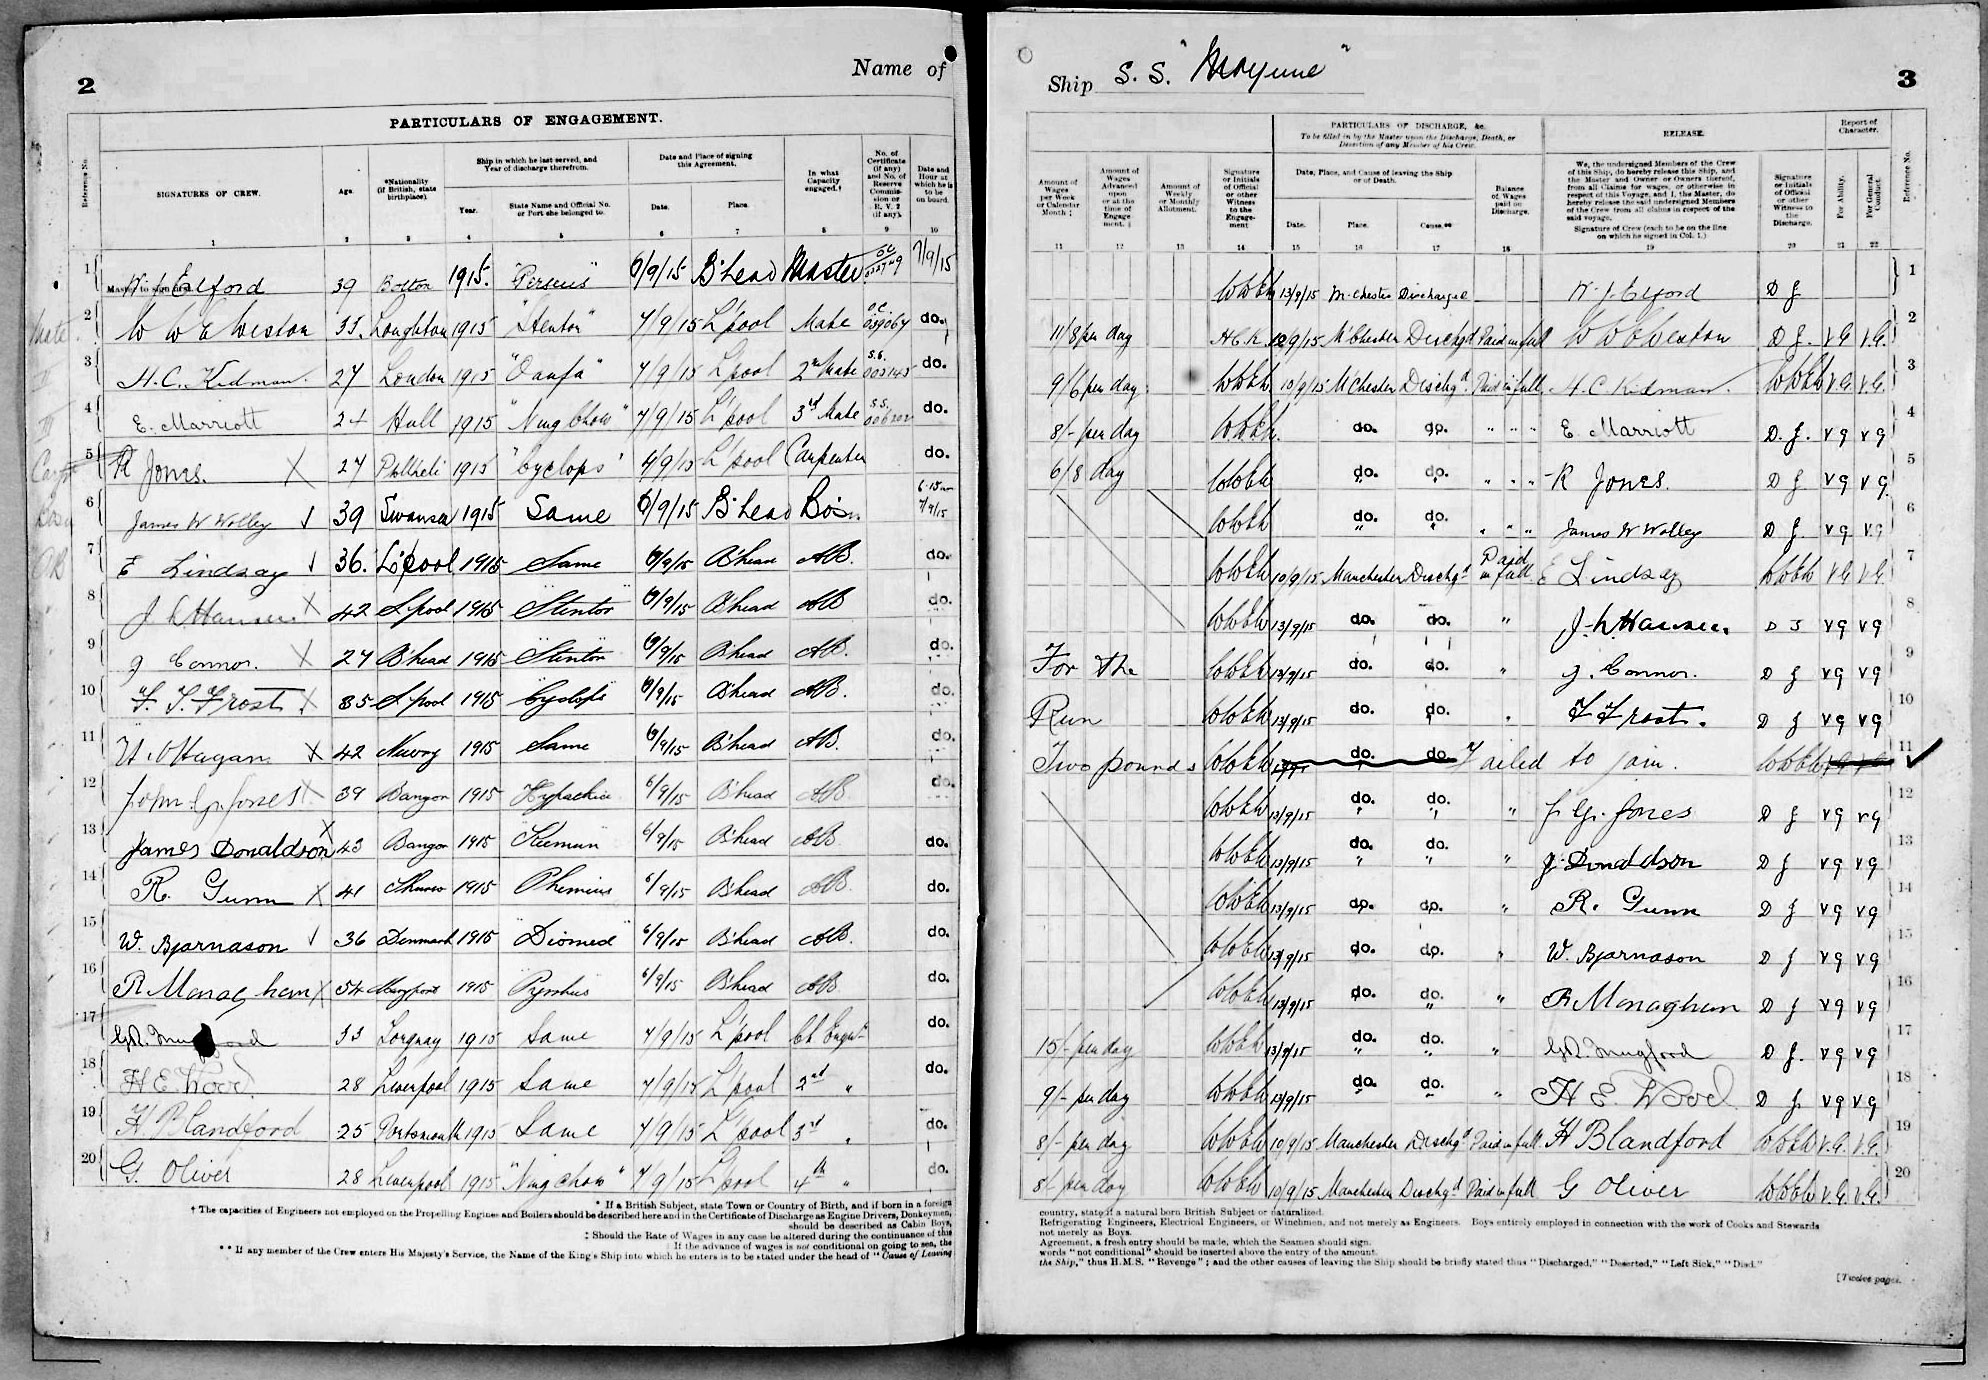 2
Name of
PARTICULARS OF ENGAGEMENT.
Reference No.
SIGNATURES OF CREW.
Age.
*Nationality (if British, state birthplace).
Ship in which he last served, and Year of discharge therefrom.
Year.
State Name and Official No. or Port she belonged to.
Date and Place of signing this Agreement.
Date.
Place.
In what Capacity engaged.†
No. of Certificate (if any) and No. of Reserve Commission or R. V. 2 (if any).
Date and Hour at which he is to be on board.
1 2 3 4 5 6 7 8 9 10
1 W. J. Elford 39 Bolton 1915. "Perseus" 6/9/15 B'head Master 7/9/15
2 W W E Weston 33. Loughton 1915 "Stentor" 7/9/15 L'pool Mate 039064 do.
3 H. C. Kidman. 27 London 1915 "Oanfa" 7/9/15 L'pool 2nd Mate 003145 do.
4 E. Marriott 24 Hull 1915 "Ningchow" 7/9/15 L'pool 3rd Mate do.
5 R Jones. X 27 Pwllheli 1915 "Cyclops" 7/9/15 L'pool Carpenter do.
6 James W Wolley 39 Swansea 1915 Same 6/9/15 B'head Bosn. 7/9/15
7 E Lindsay 36. L'pool 1915 Same 6/9/15 B'head AB. do.
8 J. L. Hansen X 42 L'pool 1915 Stentor 6/9/15 B'head AB do.
9 J Connor. X 27 B'head 1915 Stentor 6/9/15 B'head AB. do.
10 F. T. Frost. X 35 L'pool 1915 Cyclops 6/9/15 B'head AB. do.
11 H. O'Hagan X 42 Newry 1915 Same 6/9/15 B'head AB. do.
12 John G. Jones X 39 Bangor 1915 6/9/15 B'head AB do.
13 James Donaldson X 43 Bangor 1915 Keemun 6/9/15 B'head AB do.
14 R. Gunn X 41 Thurso 1915 Phemius 6/9/15 B'head AB. do.
15 W. Bjarnason 36 Denmark 1915 Diomed 6/9/15 B'head AB. do.
16 R Monaghan X 54 Maryport 1915 Pyrrhus 6/9/15 B'head AB do.
17 G. R. Mugford 33 Torquay 1915 Same 7/9/15 L'pool Ch Engr do.
18 H. E. Wood. 28 Liverpool 1915 Same 7/9/15 L'pool 2nd " do.
19 H Blandford 25 Portsmouth 1915 Same 7/9/15 L'pool 3rd " do.
20 G. Oliver 28 Liverpool 1915 "Ningchow" 7/9/15 L'pool 4th " do.
* If a British Subject, state Town or Country of Birth, and if born in a foreign
† The capacities of Engineers not employed on the Propelling Engines and Boilers should be described here and in the Certificate of Discharge as Engine Drivers, Donkeymen,
should be described as Cabin Boys,
‡ Should the Rate of Wages in any case be altered during the continuance of this
If the advance of wages is not conditional on going to sea, the
** If any member of the Crew enters His Majesty's Service, the Name of the King's Ship into which he enters is to be stated under the head of "Cause of Leaving
Ship S. S. "Moyune"
3
Amount of Wages per Week or Calendar Month ‡
Amount of Wages Advanced upon or at the time of Engagement. ‡
Amount of Weekly or Monthly Allotment.
Signature or Initials of Official or other Witness to the Engagement
PARTICULARS OF DISCHARGE, &c.
To be filled in by the Master upon the Discharge, Death, or Desertion of any Member of his Crew.
Date, Place, and Cause of leaving the Ship or of Death.
Date.
Place.
Cause.**
Balance of Wages paid on Discharge.
RELEASE.
We, the undersigned Members of the Crew of this Ship, do hereby release this Ship, and the Master and Owner or Owners thereof, from all Claims for wages, or otherwise in respect of this Voyage, and I, the Master, do hereby release the said undersigned Members of the Crew from all claims in respect of the said voyage.
Signature of Crew (each to be on the line on which he signed in Col. 1.)
Signature or Initials of Official or other Witness to the Discharge.
Report of Character.
For Ability.
For General Conduct.
Reference No.
11 12 13 14 15 16 17 18 19 20 21 22
WWEW 13/9/15 M'chester Discharged W. J. Elford D J 1
11/8 per day H.C.K. 12/9/15 M'Chester Dischgd Paid in full W W E Weston D J. V.G V.G. 2
9/6 per day WWEW 10/9/15 M'Chester Dischgd Paid in full H. C Kidman. WWEW V.G. V.G. 3
8/- per day WWEW. do. do. " " " E Marriott D. J. VG VG 4
6/8 day WWEW do. do. " " " R Jones. D J VG VG 5
WWEW do. do. " " " James W Wolley D J VG VG 6
WWEW 10/9/15 Manchester Dischgd Paid in full E Lindsay WWEW V.G V.G. 7
WWEW 13/9/15 do. do. " J. L. Hansen. D J VG VG 8
For the WWEW 13/9/15 do. do. " J. Connor. D J VG VG 9
Run WWEW 13/9/15 do. do. " F Frost. D J VG VG 10
Two pounds WWEW do. do. Failed to join. WWEW 11
WWEW 13/9/15 do. do. " J. G. Jones D J VG VG 12
WWEW 13/9/15 do. do. " J. Donaldson D J VG VG 13
WWEW 13/9/15 do. do. " R. Gunn D J VG VG 14
WWEW 13/9/15 do. do. " W. Bjarnason D J VG VG 15
WWEW 13/9/15 do. do. " R Monaghan D J VG VG 16
15/- per day WWEW 13/9/15 do. do. " G. R. Mugford D J. VG VG 17
9/- per day WWEW 13/9/15 do. do. " H E Wood D J. VG VG 18
8/- per day WWEW 10/9/15 Manchester Dischgd Paid in full H Blandford WWEW V.G. V.G. 19
8/- per day WWEW 10/9/15 Manchester Dischgd Paid in full G Oliver WWEW V.G. V.G. 20
country, state if a natural born British Subject or naturalized.
Refrigerating Engineers, Electrical Engineers, or Winchmen, and not merely as Engineers. Boys entirely employed in connection with the work of Cooks and Stewards
not merely as Boys.
Agreement, a fresh entry should be made, which the Seamen should sign.
words "not conditional" should be inserted above the entry of the amount.
the Ship," thus H.M.S. "Revenge"; and the other causes of leaving the Ship should be briefly stated thus "Discharged," "Deserted," "Left Sick," "Died."
[Twelve pages.